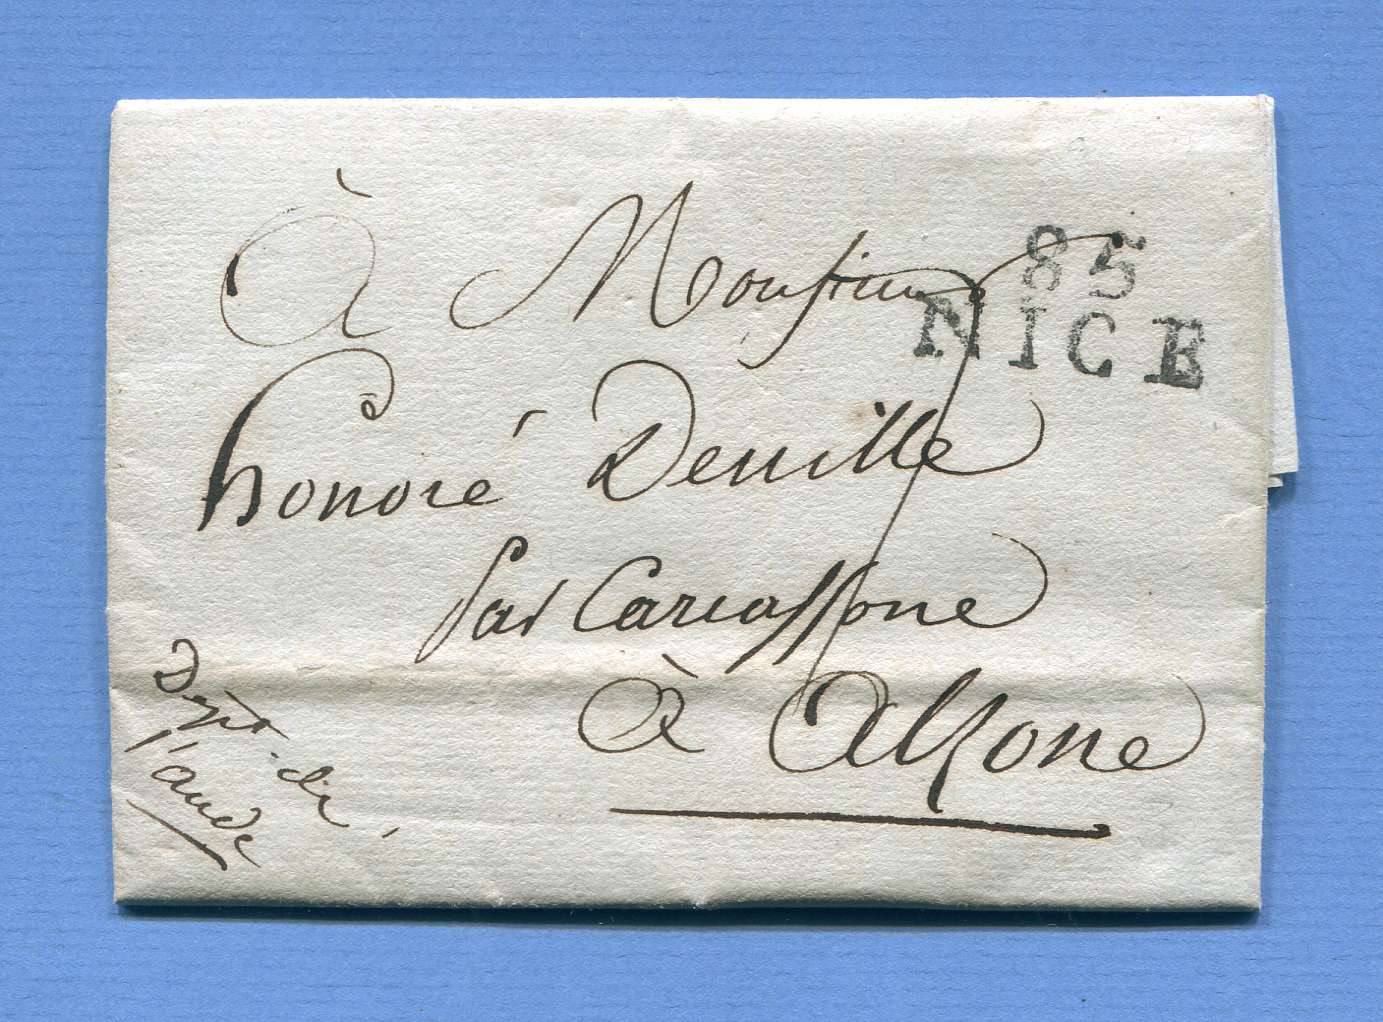 À Monsieur
85
NICE
honoré Deville
par Carcassone
à Alzone
Dept. de
l'aude